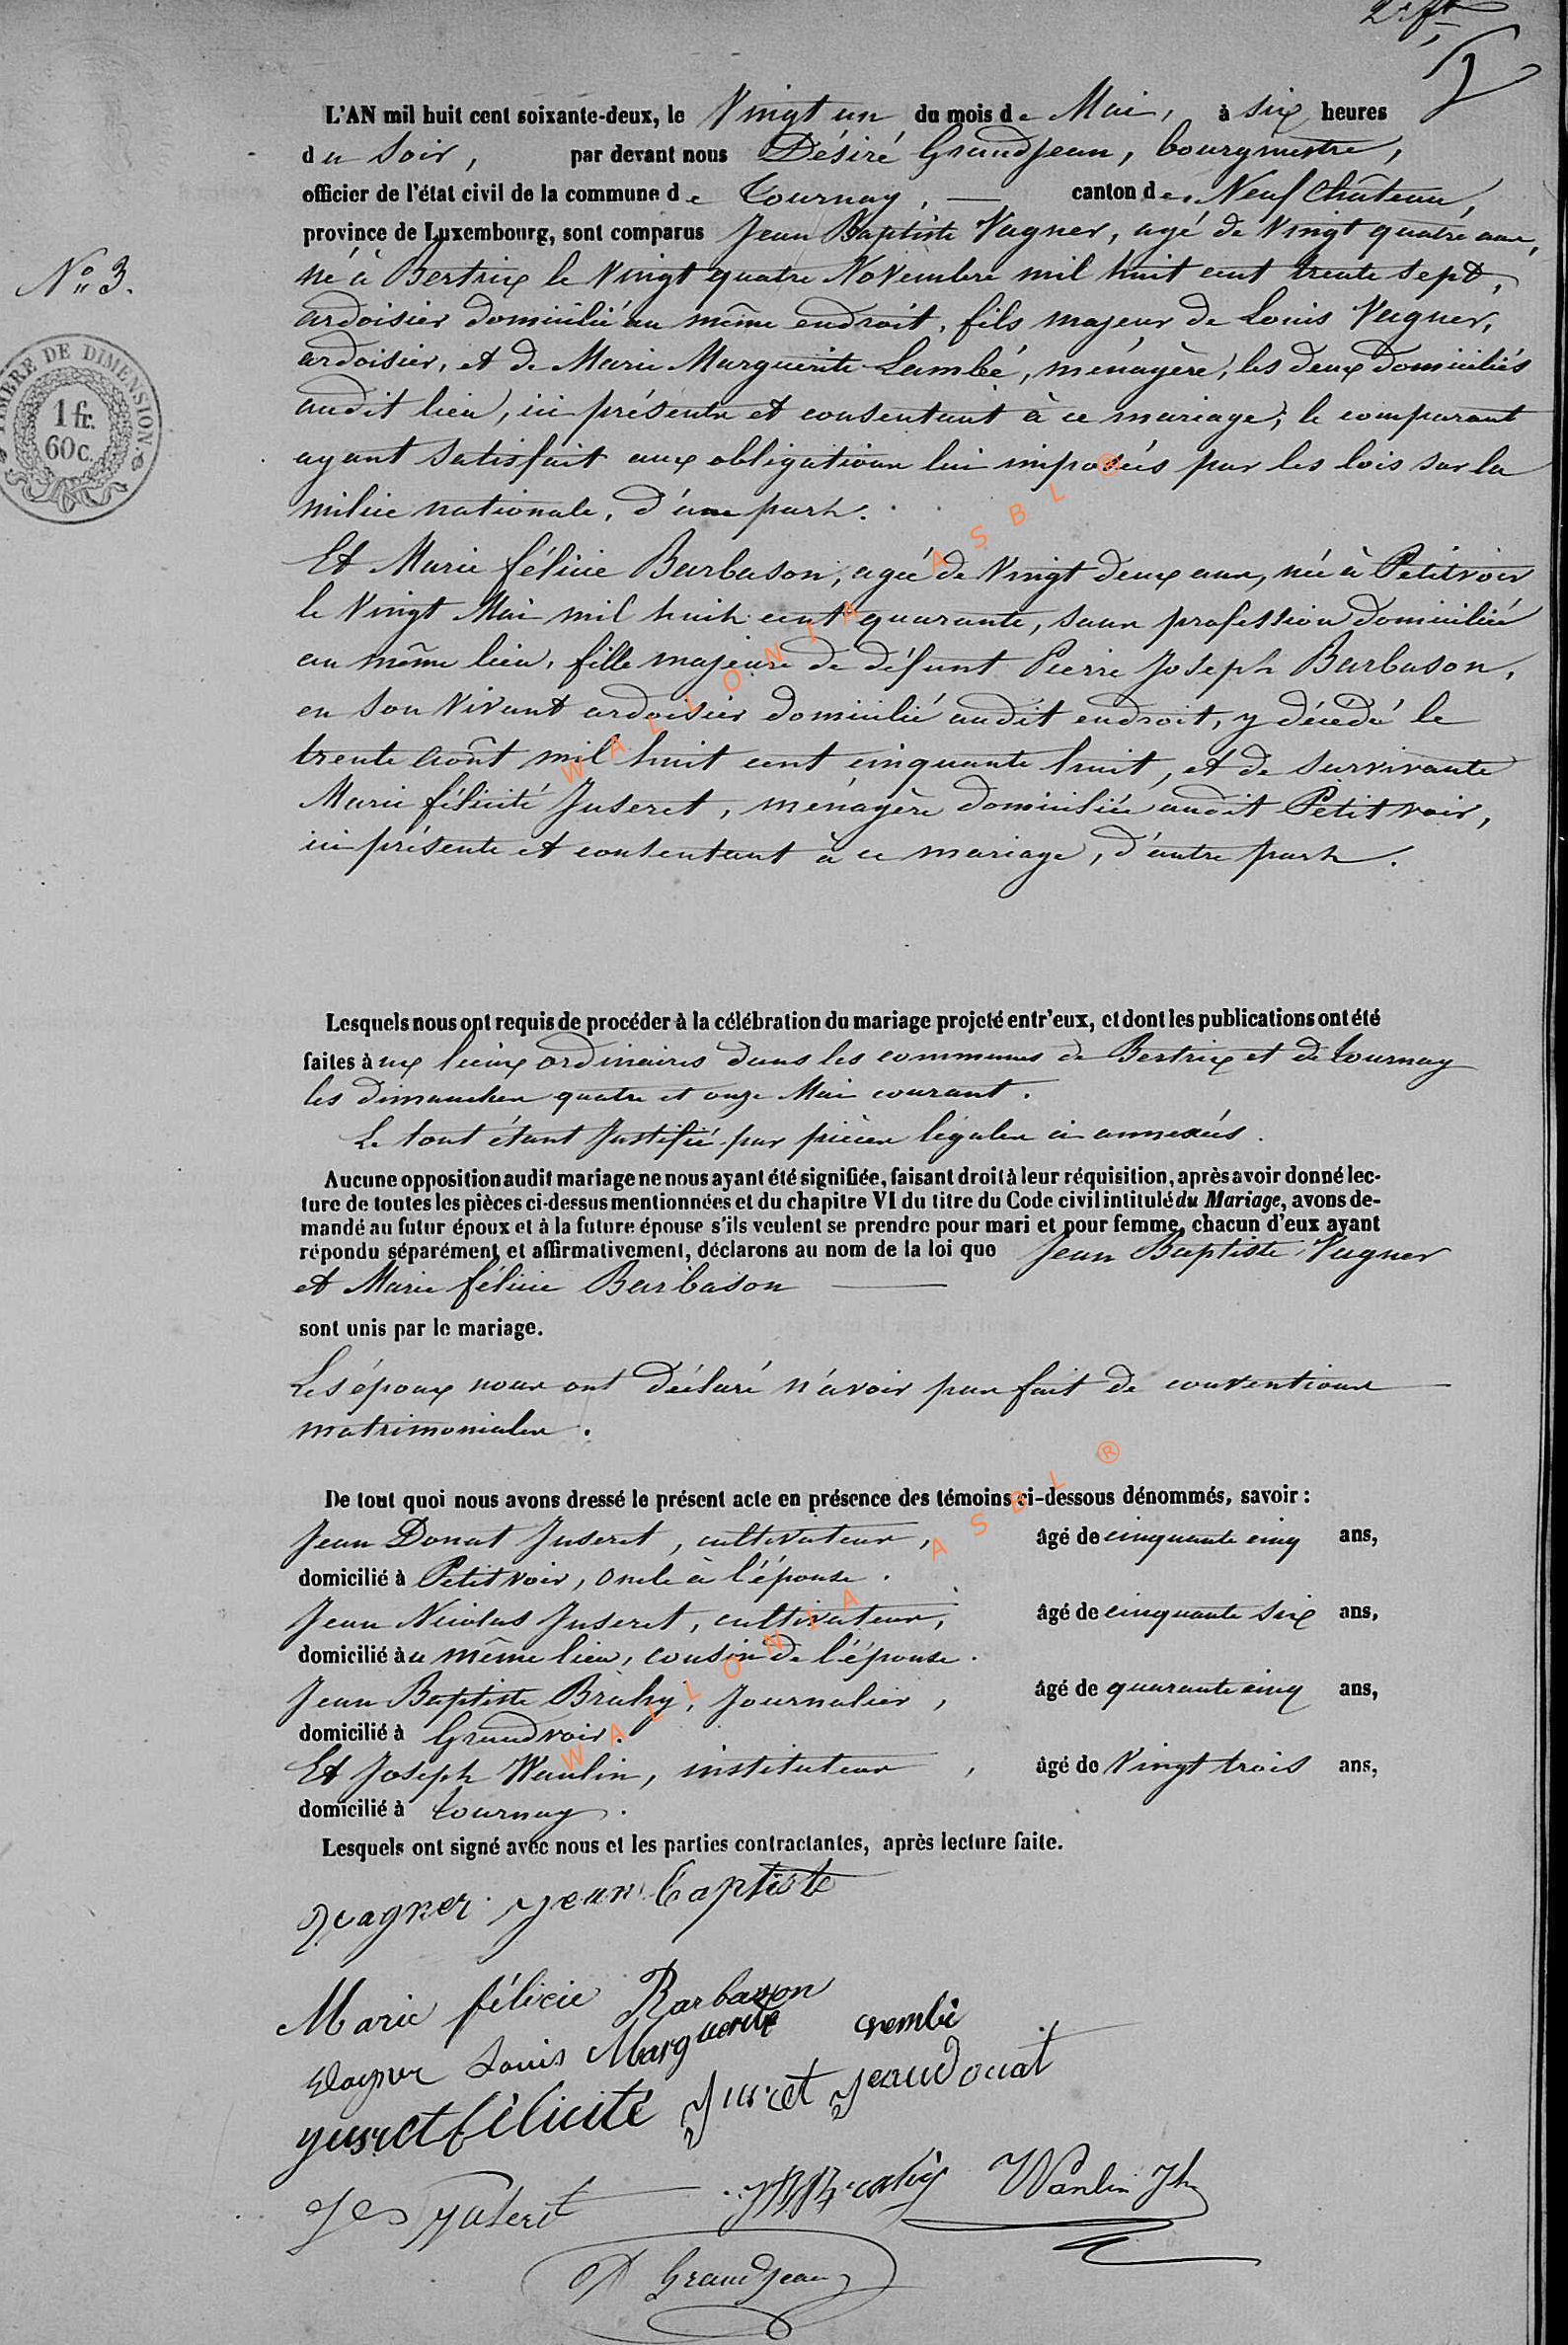 2e ft
N° 3.
TIMBRE DE DIMENSION.
1 fr.
60c.
L'AN mil huit cent soixante-deux, le Vingt un du mois de Mai, à six heures
du soir, par devant nous Désiré Grandjean, bourgmestre,
officier de l'état civil de la commune de Tournay, — canton de Neufchâteau,
province de Luxembourg, sont comparus Jean Baptiste Vagner, agé de Vingt quatre ans,
né à Bertrix le Vingt quatre Novembre mil huit cent trente sept,
ardoisier domicilié au même endroit, fils majeur de Louis Vagner,
ardoisier, et de Marie Marguerite Lambé, ménagère, les deux domiciliés
audit lieu, ici présents et consentant à ce mariage; le comparant
ayant satisfait aux obligations lui imposées par les lois sur la
milice nationale, d'une part.
Et Marie félicie Barbason, agée de Vingt deux ans, née à Petitvoir
le Vingt Mai mil huit cent quarante, sans profession domiciliée
au même lieu, fille majeure de défunt Pierre Joseph Barbason,
en son vivant ardoisier domicilié audit endroit, y décédé le
trente août mil huit cent cinquante huit, et de survivante
Marie félicité Juseret, ménagère domiciliée audit Petitvoir,
ici présente et consentant à ce mariage, d'autre part.
Lesquels nous ont requis de procéder à la célébration du mariage projeté entr'eux, et dont les publications ont été
faites aux lieux ordinaires dans les communes de Bertrix et de Tournay
les dimanches quatre et onze Mai courant.
Le tout étant justifié par pièces légales ci annexées.
Aucune opposition audit mariage ne nous ayant été signifiée, faisant droit à leur réquisition, après avoir donné lec-
ture de toutes les pièces ci-dessus mentionnées et du chapitre VI du titre du Code civil intitulé du Mariage, avons de-
mandé au futur époux et à la future épouse s'ils veulent se prendre pour mari et pour femme, chacun d'eux ayant
répondu séparément et affirmativement, déclarons au nom de la loi que Jean Baptiste Vagner
et Marie félicie Barbason —
sont unis par le mariage.
Les époux nous ont déclaré n'avoir pas fait de conventions
matrimoniales.
De tout quoi nous avons dressé le présent acte en présence des témoins ci-dessous dénommés, savoir :
Jean Donat Juseret, cultivateur, âgé de cinquante cinq ans,
domicilié à Petitvoir, oncle à l'épouse.
Jean Nicolas Juseret, cultivateur, âgé de cinquante six ans,
domicilié au même lieu, cousin de l'épouse.
Jean Baptiste Brahy, Journalier, âgé de quarante cinq ans,
domicilié à Grandvoir.
Et Joseph Wanlin, instituteur, âgé de Vingt trois ans,
domicilié à Tournay.
Lesquels ont signé avec nous et les parties contractantes, après lecture faite.
Wagner jean baptiste
Marie félicie Barbason
Wagner Louis Marguerite
jusret félicité Jusret Jeandonat
Juseret
Wanlin Jh
D Grandjean
WALLONIA ASBL ®
WALLONIA ASBL ®